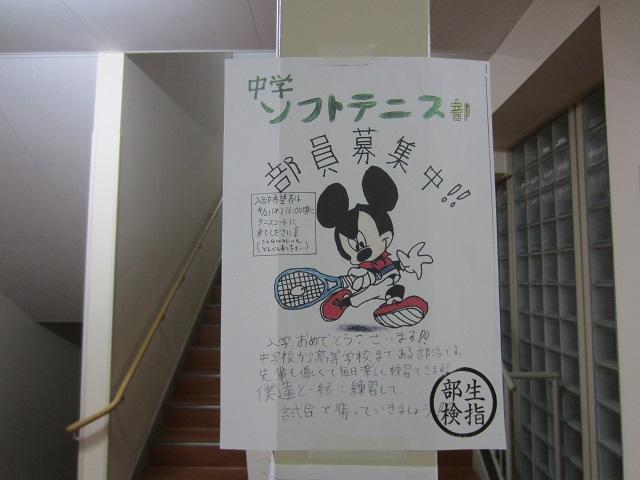 中学
ソフトテニス部
部員募集中!!
入部希望者は
4/21(木)16:00頃に
テニスコートに
来てください!
入学おめでとうございます!!
中学校から高等学校まである部活です。
先輩も優しくて毎日楽しく練習できます!
僕達と一緒に練習して
試合で勝っていきましょう
生指
部検